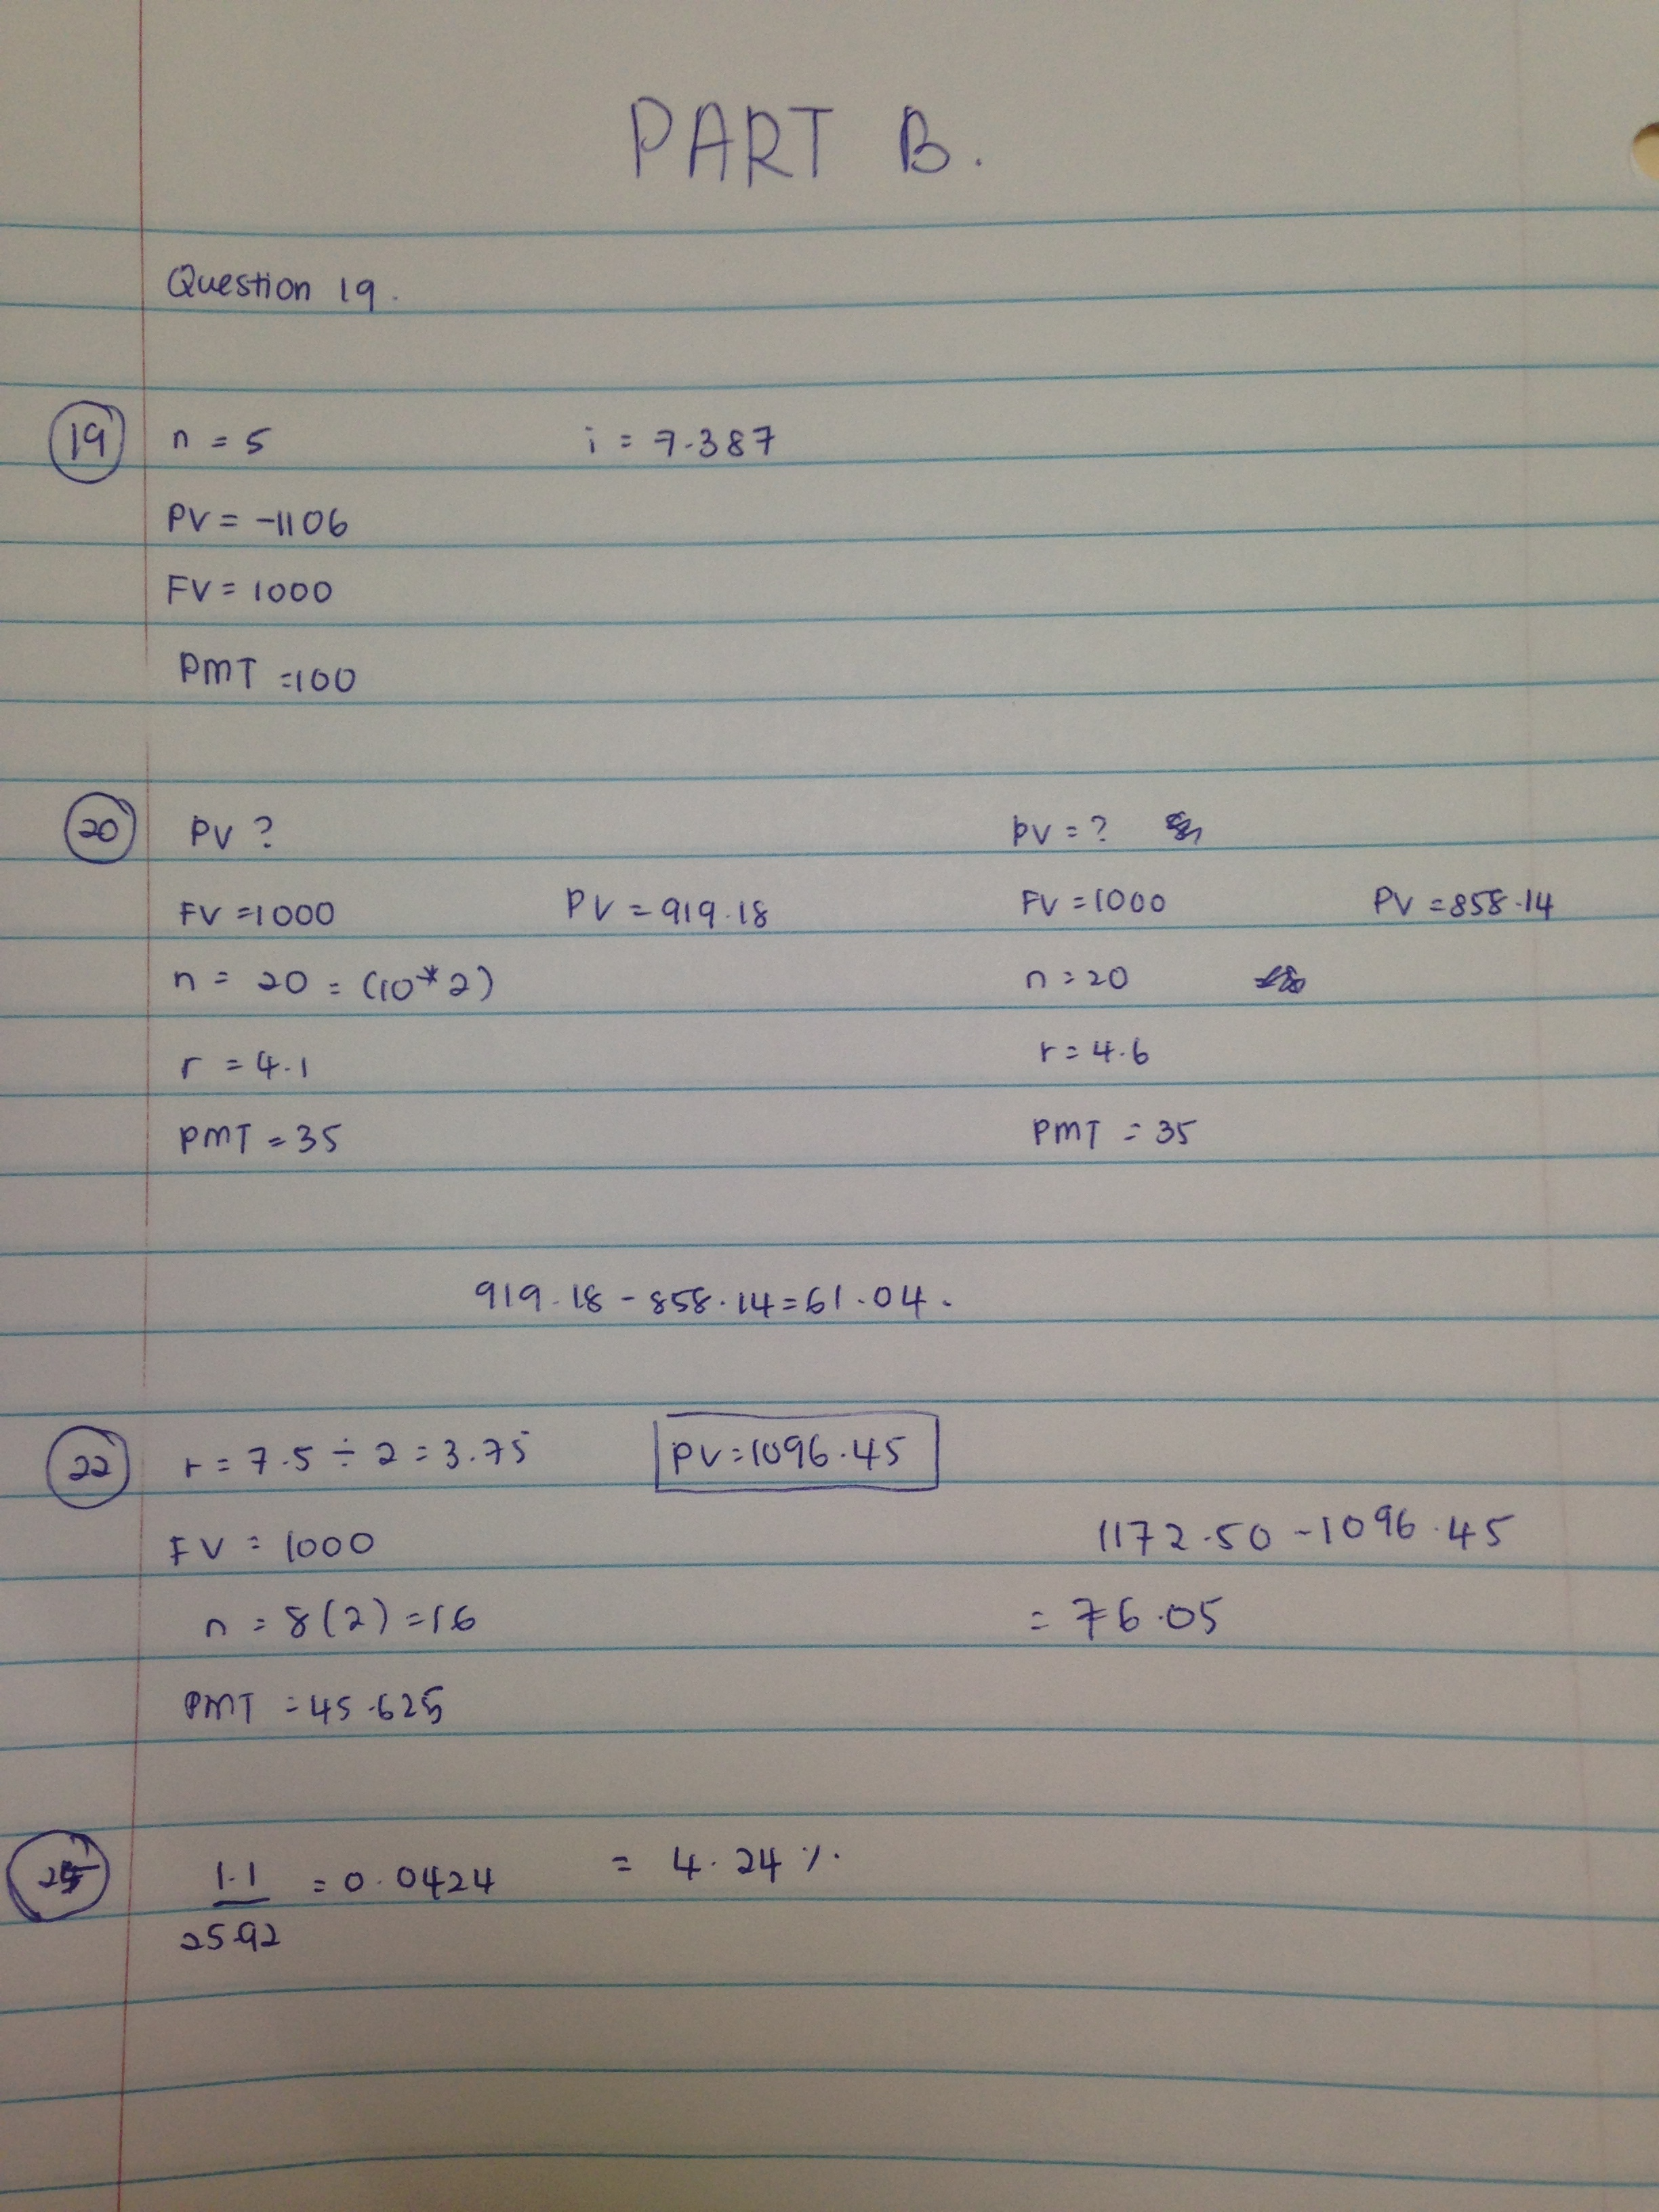 PART B.
Question 19.
19 n = 5 i = 7.387
PV = -1106
FV = 1000
PMT = 100
20 PV ? PV = ?
FV = 1000 PV = 919.18 FV = 1000 PV = 858.14
n = 20 = (10*2) n = 20
r = 4.1 r = 4.6
PMT = 35 PMT = 35
919.18 - 858.14 = 61.04.
22 r = 7.5 ÷ 2 = 3.75 PV = 1096.45
FV = 1000 1172.50 - 1096.45
n = 8(2) = 16 = 76.05
PMT = 45.625
1.1 = 0.0424 = 4.24%.
25.92